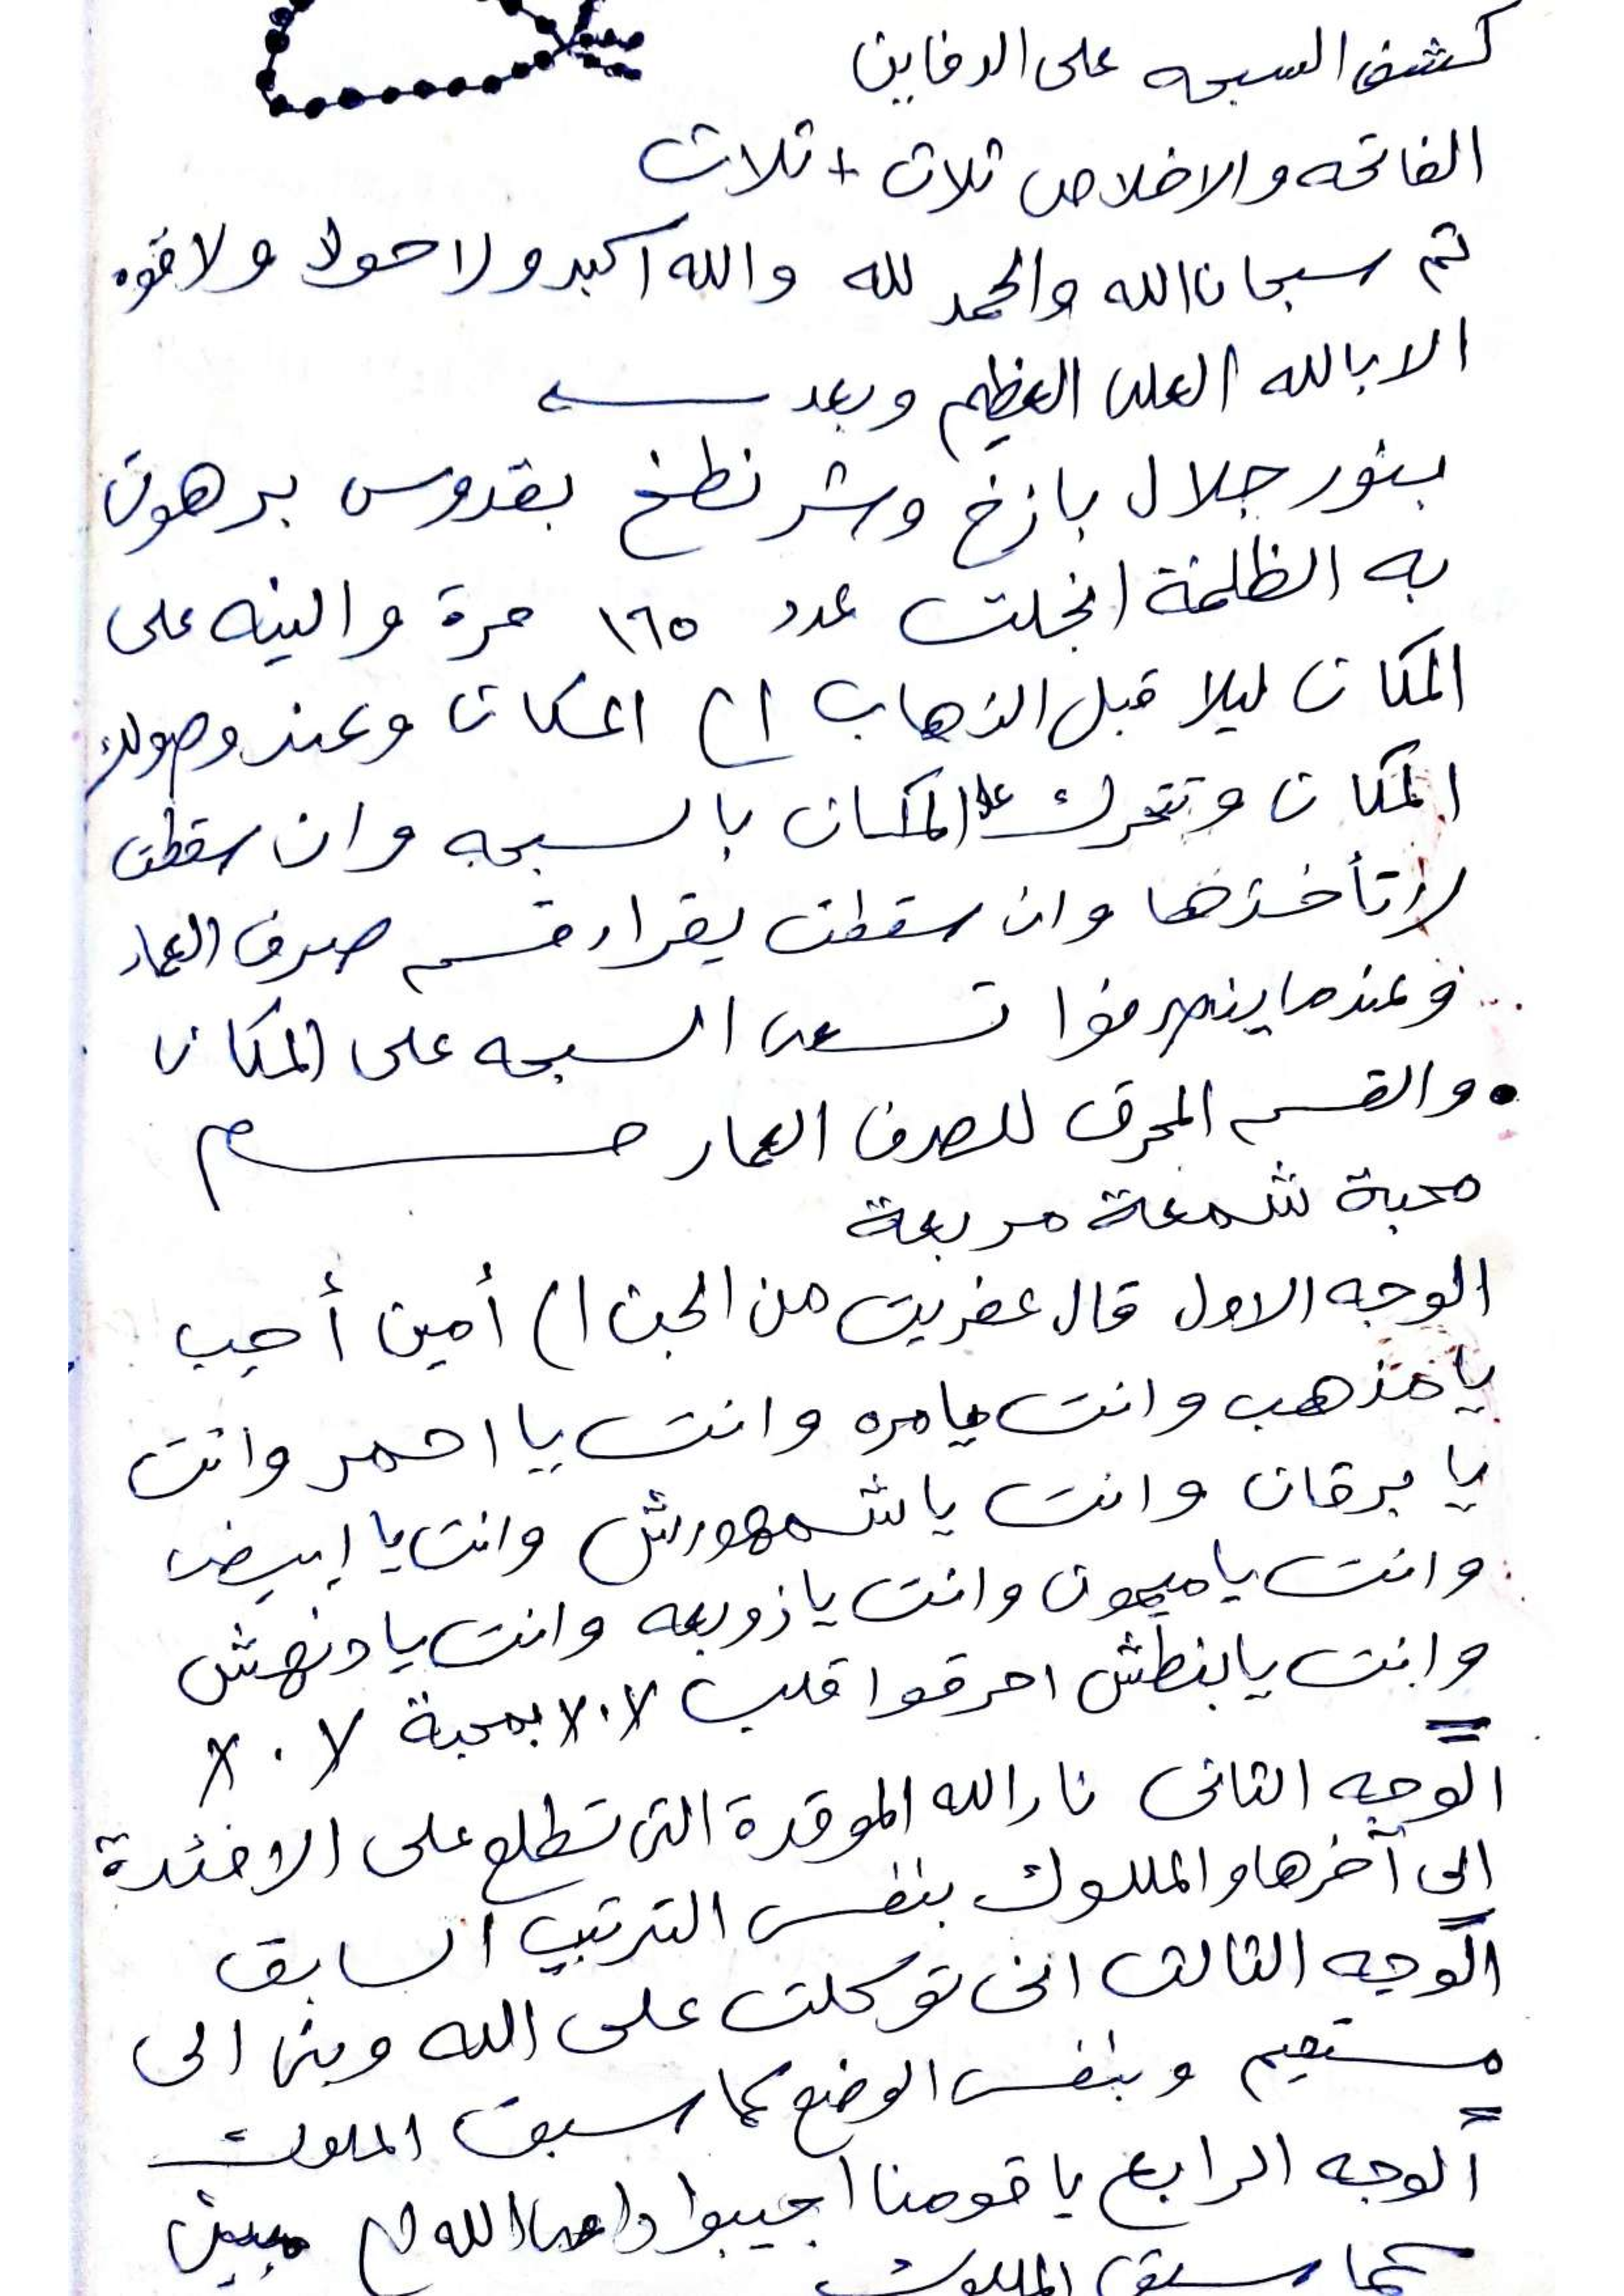 كشف السبحه على الدفاين
الفاتحه والاخلاص ثلاث + ثلاث
ثم سبحان الله والحمد لله والله اكبر ولا حولا ولا قوه
الا بالله العلى العظيم وبعد
بنور جلال بازخ وشرنطخ بقدوس برهوت
به الظلمة انجلت عدد ١٦٥ مرة والنيه على
المكان ليلا قبل الذهاب الى المكان وعند وصولك
المكان وتتحرك على المكان بالسبحه وان سقطت
لا تأخذها وان سقطت يقراء قسم صرف العمار
وعندما ينصرفوا تسعى السبحه على المكان
• والقسم المحرق للصرف العمار
محبة شمعة مربعة
الوجه الاول قال عفريت من الجن الى أمين أجب
يا مذهب وانت يامره وانت يا احمر وانت
يا برقان وانت يا شمهورش وانت يا ابيض
وانت يا ميمون وانت يا زوبعه وانت يا دنهش
وانت يا بنطش احرقوا قلب ٧٠٨ بمحبة ٧٠٨
الوجه الثانى نار الله الموقدة التى تطلع على الافئدة
الى آخرها والملوك بنفس الترتيب السابق
الوجه الثالث انى توكلت على الله ربى الى
مستقيم وبنفس الوضع كما سبق الملوك
الوجه الرابع يا قومنا اجيبوا داعى الله الى مبين
كما سبق الملوك